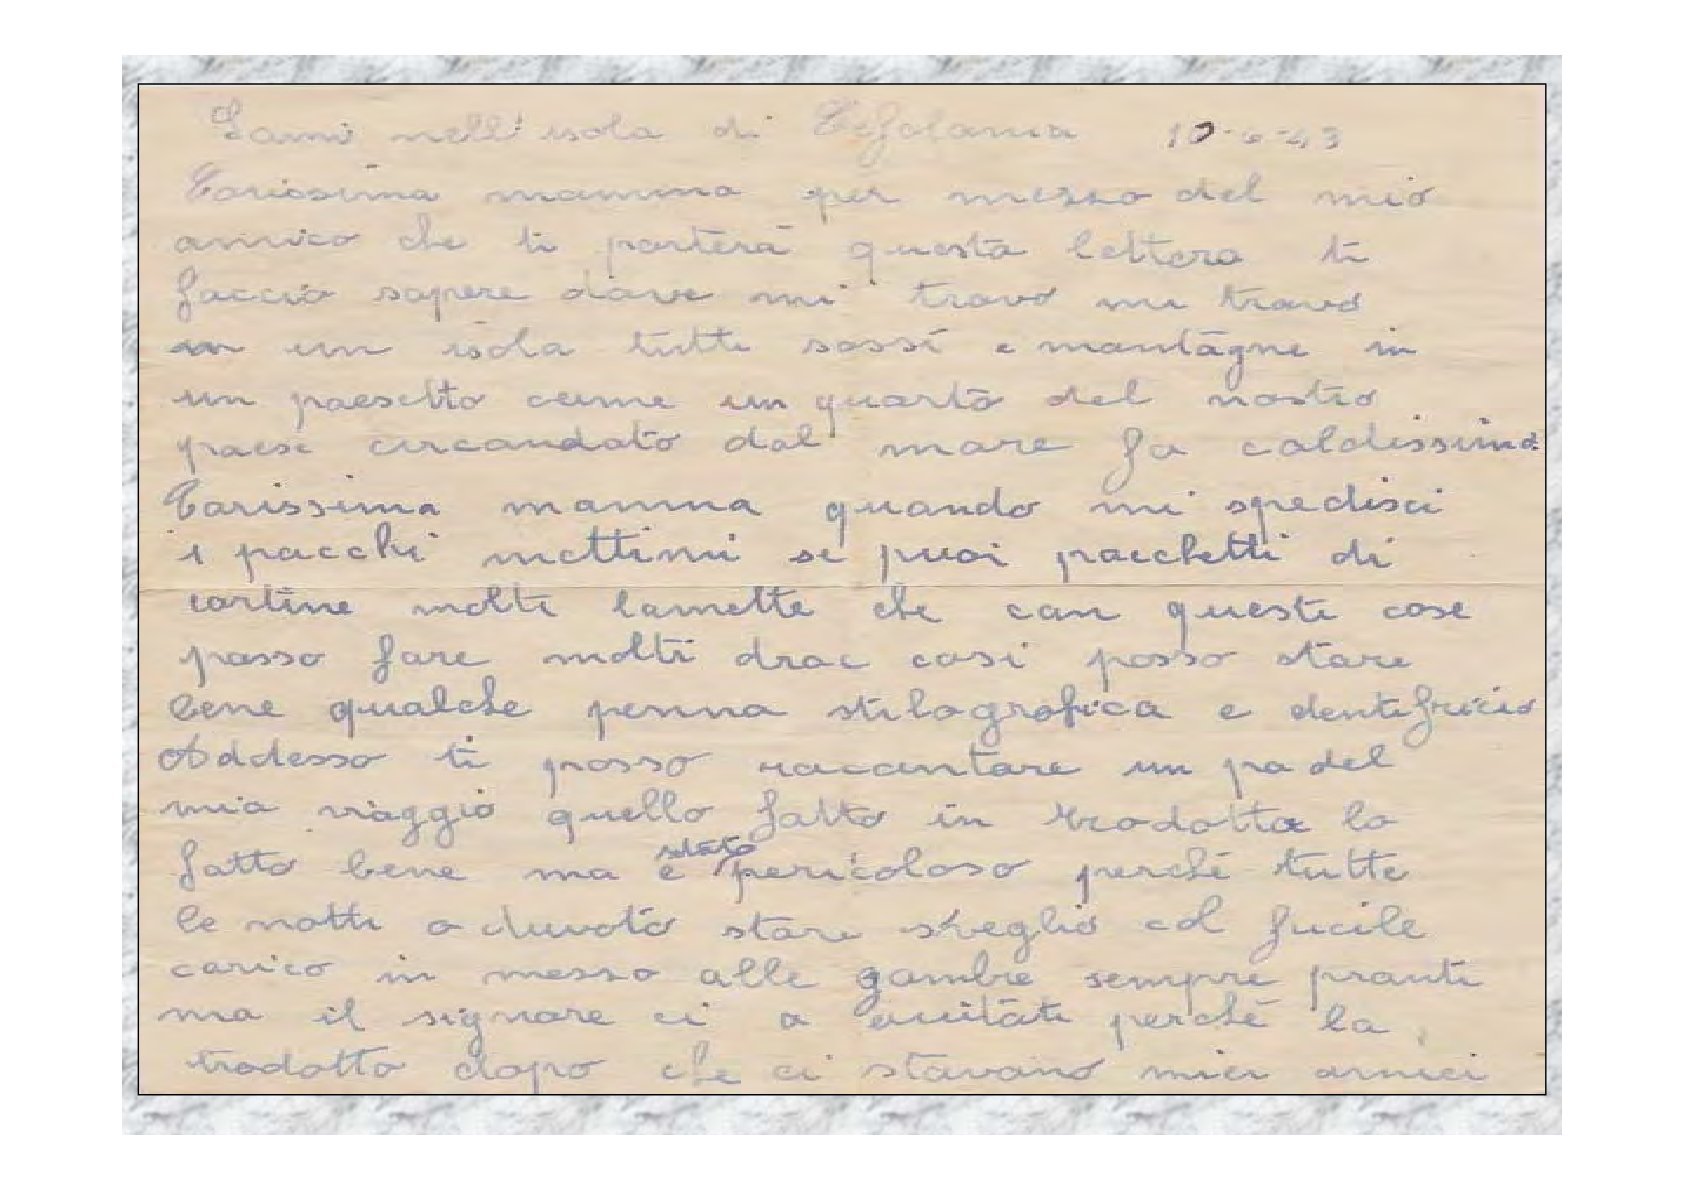 Sami nell'isola di Cefolania 10-6-43
Carissima mamma per messo del mio
amico che ti porterà questa lettera ti
faccio sapere dove mi trovo mi trovo
in un isola tutti sassi e montagne in
un paesetto come un quarto del nostro
paese circondato dal mare fa caldissimo
Carissima mamma quando mi spedisci
i pacchi mettimi se puoi pacchetti di
cartine molti lamette che con queste cose
posso fare molti drac cosi posso stare
bene qualche penna stilografica e dentifricio
Addesso ti posso raccontare un po del
mio viaggio quello fatto in tradotta lo
fatto bene ma è stato pericoloso perchè tutte
le notti o duvoto stare sveglio col fucile
carico in messo alle gambre sempre pronti
ma il signore ci a auitati perchè la
tradotto dopo che ci stavano miei amici